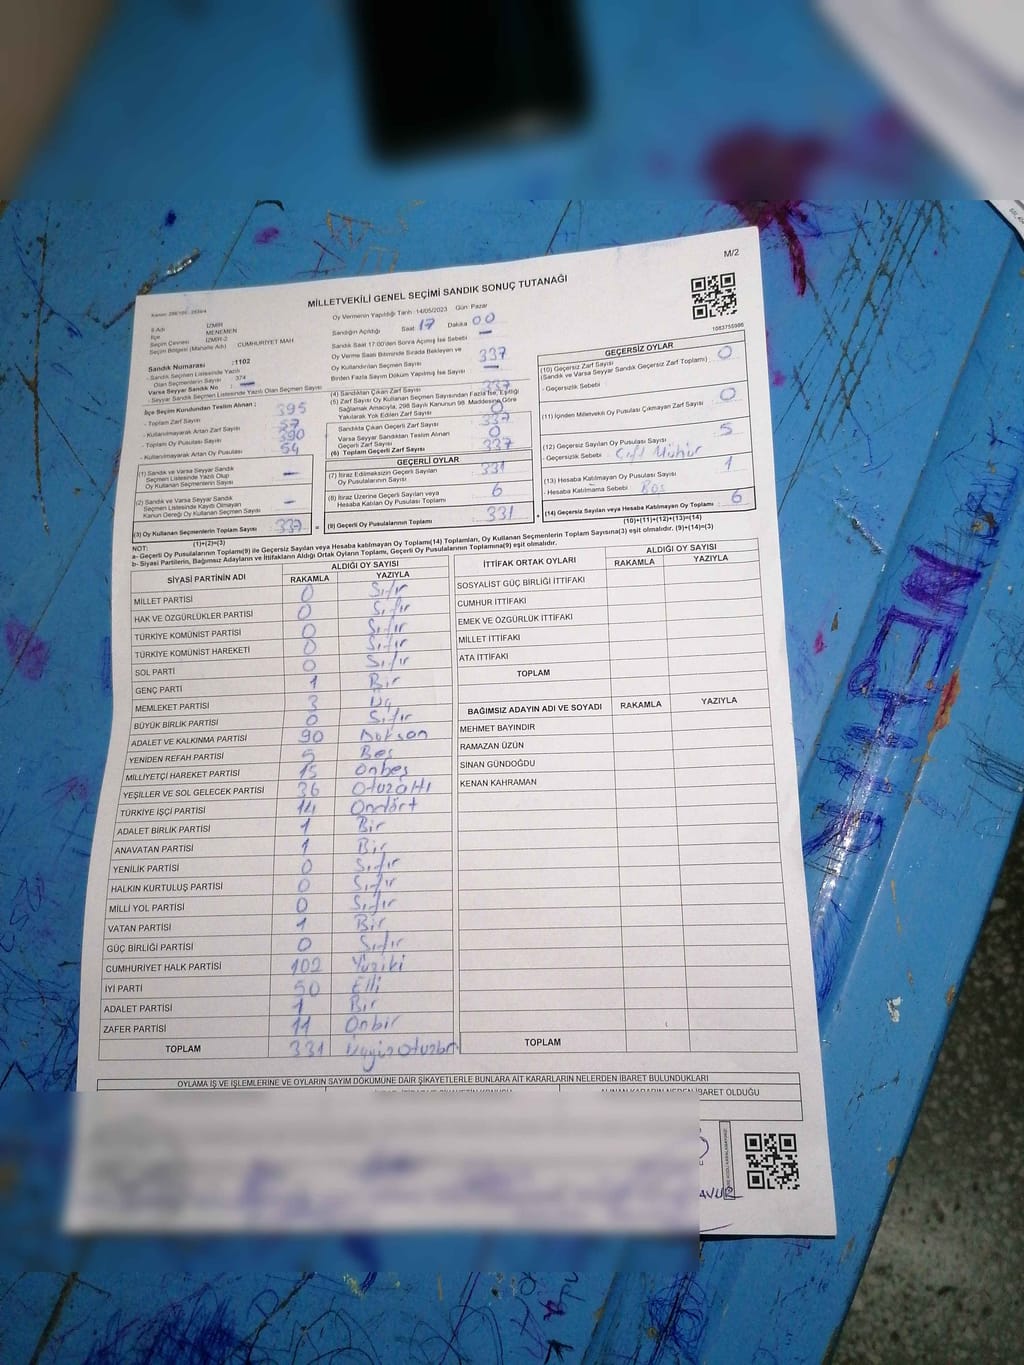 M/2
MİLLETVEKİLİ GENEL SEÇİMİ SANDIK SONUÇ TUTANAĞI
1083755986
İl Adı İZMİR
İlçe MENEMEN
Seçim Çevresi İZMİR-2
Seçim Bölgesi (Mahalle Adı) CUMHURİYET MAH
Oy Vermenin Yapıldığı Tarih :14/05/2023 Gün :Pazar
Sandığın Açıldığı Saat 17 Dakika 00
Sandık Saat 17:00'den Sonra Açılmış İse Sebebi —
Oy Verme Saati Bitiminde Sırada Bekleyen ve
Oy Kullandırılan Seçmen Sayısı 337
Birden Fazla Sayım Döküm Yapılmış İse Sayısı —
Sandık Numarası :1102
- Sandık Seçmen Listesinde Yazılı
Olan Seçmenlerin Sayısı 374
Varsa Seyyar Sandık No : —
- Seyyar Sandık Seçmen Listesinde Yazılı Olan Seçmen Sayısı
İlçe Seçim Kurulundan Teslim Alınan ;
- Toplam Zarf Sayısı 395
- Kullanılmayarak Artan Zarf Sayısı 57
- Toplam Oy Pusulası Sayısı 390
- Kullanılmayarak Artan Oy Pusulası 54
(1) Sandık ve Varsa Seyyar Sandık
Seçmen Listesinde Yazılı Olup
Oy Kullanan Seçmenlerin Sayısı —
(2) Sandık ve Varsa Seyyar Sandık
Seçmen Listesinde Kaydı Olmayan
Kanun Gereği Oy Kullanan Seçmen Sayısı —
(3) Oy Kullanan Seçmenlerin Toplam Sayısı 337
(1)+(2)=(3)
(4) Sandıktan Çıkan Zarf Sayısı 337
(5) Zarf Sayısı Oy Kullanan Seçmen Sayısından Fazla İse, Eşitliği
Sağlamak Amacıyla, 298 Sayılı Kanunun 98. Maddesine Göre
Yakılarak Yok Edilen Zarf Sayısı 0
Sandıkta Çıkan Geçerli Zarf Sayısı 337
Varsa Seyyar Sandıktan Teslim Alınan
Geçerli Zarf Sayısı 0
(6) Toplam Geçerli Zarf Sayısı 337
GEÇERLİ OYLAR
(7) İtiraz Edilmeksizin Geçerli Sayılan
Oy Pusulalarının Sayısı 331
(8) İtiraz Üzerine Geçerli Sayılan veya
Hesaba Katılan Oy Pusulası Toplamı 6
(9) Geçerli Oy Pusulalarının Toplamı 331
GEÇERSİZ OYLAR
(10) Geçersiz Zarf Sayısı
(Sandık ve Varsa Seyyar Sandık Geçersiz Zarf Toplamı) 0
- Geçersizlik Sebebi
(11) İçinden Milletvekili Oy Pusulası Çıkmayan Zarf Sayısı 0
(12) Geçersiz Sayılan Oy Pusulası Sayısı 5
- Geçersizlik Sebebi Çift Mühür
(13) Hesaba Katılmayan Oy Pusulası Sayısı 1
- Hesaba Katılmama Sebebi Boş
(14) Geçersiz Sayılan veya Hesaba Katılmayan Oy Toplamı 6
(10)+(11)+(12)+(13)=(14)
NOT:
a- Geçerli Oy Pusulalarının Toplamı(9) ile Geçersiz Sayılan veya Hesaba katılmayan Oy Toplamı(14) Toplamları, Oy Kullanan Seçmenlerin Toplam Sayısına(3) eşit olmalıdır. (9)+(14)=(3)
b- Siyasi Partilerin, Bağımsız Adayların ve İttifakların Aldığı Ortak Oyların Toplamı, Geçerli Oy Pusulalarının Toplamına(9) eşit olmalıdır.
SİYASİ PARTİNİN ADI ALDIĞI OY SAYISI
RAKAMLA YAZIYLA
MİLLET PARTİSİ 0 Sıfır
HAK VE ÖZGÜRLÜKLER PARTİSİ 0 Sıfır
TÜRKİYE KOMÜNİST PARTİSİ 0 Sıfır
TÜRKİYE KOMÜNİST HAREKETİ 0 Sıfır
SOL PARTİ 0 Sıfır
GENÇ PARTİ 1 Bir
MEMLEKET PARTİSİ 3 Üç
BÜYÜK BİRLİK PARTİSİ 0 Sıfır
ADALET VE KALKINMA PARTİSİ 90 Doksan
YENİDEN REFAH PARTİSİ 5 Beş
MİLLİYETÇİ HAREKET PARTİSİ 15 Onbeş
YEŞİLLER VE SOL GELECEK PARTİSİ 36 Otuzaltı
TÜRKİYE İŞÇİ PARTİSİ 14 Ondört
ADALET BİRLİK PARTİSİ 1 Bir
ANAVATAN PARTİSİ 1 Bir
YENİLİK PARTİSİ 0 Sıfır
HALKIN KURTULUŞ PARTİSİ 0 Sıfır
MİLLİ YOL PARTİSİ 0 Sıfır
VATAN PARTİSİ 1 Bir
GÜÇ BİRLİĞİ PARTİSİ 0 Sıfır
CUMHURİYET HALK PARTİSİ 102 Yüziki
İYİ PARTİ 50 Elli
ADALET PARTİSİ 1 Bir
ZAFER PARTİSİ 11 Onbir
TOPLAM 331 Üçyüzotuzbir
İTTİFAK ORTAK OYLARI ALDIĞI OY SAYISI
RAKAMLA YAZIYLA
SOSYALİST GÜÇ BİRLİĞİ İTTİFAKI
CUMHUR İTTİFAKI
EMEK VE ÖZGÜRLÜK İTTİFAKI
MİLLET İTTİFAKI
ATA İTTİFAKI
TOPLAM
BAĞIMSIZ ADAYIN ADI VE SOYADI RAKAMLA YAZIYLA
MEHMET BAYINDIR
RAMAZAN ÜZÜN
SİNAN GÜNDOĞDU
KENAN KAHRAMAN
TOPLAM
OYLAMA İŞ VE İŞLEMLERİNE VE OYLARIN SAYIM DÖKÜMÜNE DAİR ŞİKAYETLERLE BUNLARA AİT KARARLARIN NELERDEN İBARET BULUNDUKLARI
ALINAN KARARIN NEDEN İBARET OLDUĞU